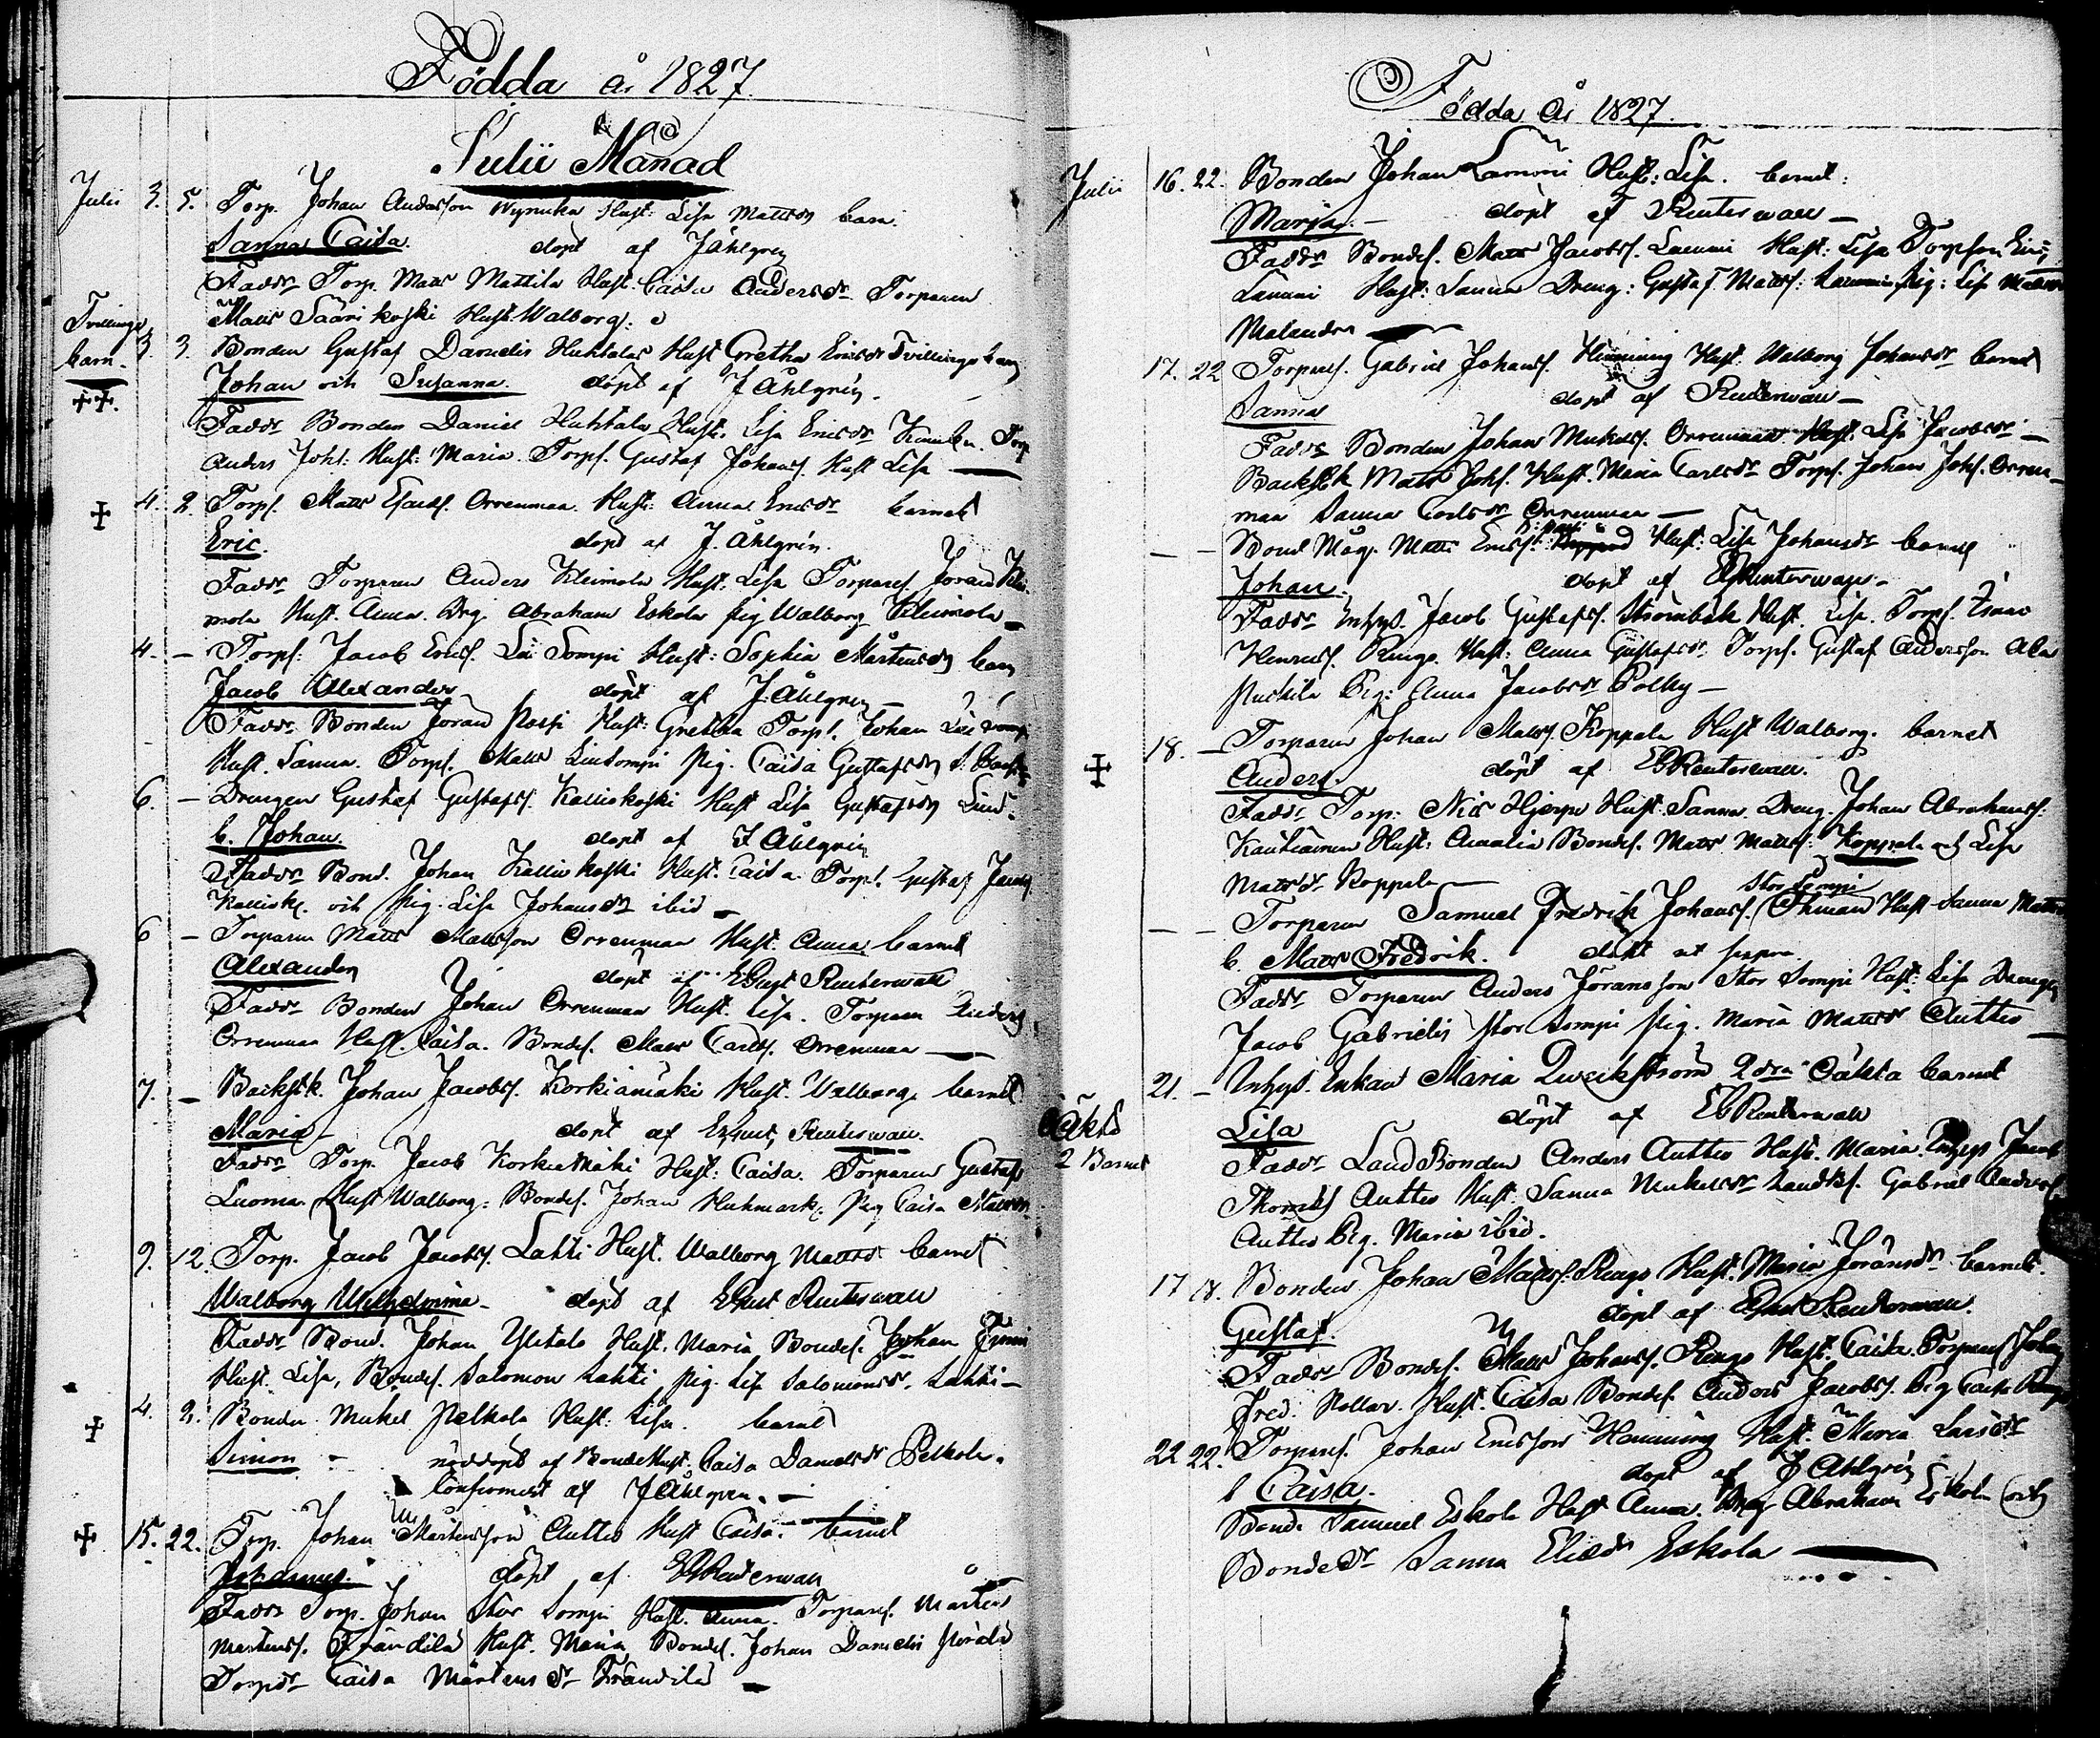 Födda år 1827.
Julii Månad
Julii 3. 5. Torp. Johan Andersson Nynika Hust: Lisa Mattsdr barn.
Sanna Caisa. döpt af J Åhlgren
Faddr Torp. Matts Mattila Hust: Caisa Andersdr Torparen
Matts Säärikoski Hust: Walborg.
Tvillinge barn. ++. 3. 3. Bonden Gustaf Danielis Huhtala Hust Gretha Ericsdr Tvillingebarn
Johan och Susanna. döpt af J Åhlgren.
Faddr Bonden Daniel Huhtala Hust. Lisa Ericsdr Torp
Anders Johs: Hust: Maria. Torps. Gustaf Johans. Hust Lisa
+ 4. 2. Torps. Matts Esaias. Orrenmaa Hust: Anna Ericsdr barnet
Eric. döpt af J. Åhlgren.
Faddr Torparen Anders Kleimola Hust: Lisa Torpares. Joran Klei
mola Hust. Anna. Drg. Abraham Eskola pig Walborg Kleimola
4. – Torps: Jacob Erics. Lii Sompi Hust: Sophia Mårtensdr barn
Jacob Alexander döpt af J. Åhlgren
Faddr Bonden Joran Passi Hust: Gretha Torps. Johan Lii Sompi
Hust. Sanna. Torps. Matts Liisompi Pig. Caisa Gustafsdr
6. – Drengen Gustaf Gustafs. Kalliokoski Hust Lisa Gustafsdr Lind
b. Johan. döpt af J Åhlgren
Faddr Bond. Johan Kalliokoski Hust. Caisa. Torps. Gustaf
Kalliok. och pig. Lisa Johansdr ibid
6 – Torparen Matts Mattsson Orrenmaa Hust. Anna barnet
Alexander döpt af EGust Reuterwall
Faddr Bonden Johan Orrenmaa Hust. Lisa. Torparen Anders
Orrenmaa Hust. Caisa. Bondes. Matts Carls. Orrenmaa
7. – Backstk. Johan Jacobss. Korkiamäki Hust. Walborg barnet
Maria döpt af EGust Reuterwall.
Faddr Torp. Jacob Korkiamäki Hust: Caisa. Torparen Gustaf
Luoma Hust Walborg: Bondes. Johan Huhmark. Pig Caisa
9. 12. Torp. Jacob Jacobss. Lahti Hust. Walborg Mattsdr barnet
Walborg Wilhelmina döpt af EGust Reuterwall
Faddr Bond. Johan Ylitalo Hust. Maria Bondes. Johan
Hust. Lisa, Bondes. Salomon Lahti pig. Lisa Salomonsdr. Lahti
+ 4. 2. Bonden Mickel Pelkola Hust: Lisa. barnet
Simon nöddöpt af BondeHust: Caisa Danielsdr Pelkola.
Confirmerat af J Åhlgren.
+ 15. 22. Torp. Johan Mårtensson Auttio Hust Caisa. barnet
Johannes. döpt af EGReuterwall
Faddr Torp. Johan Stor Sompi Hust. Anna. Torpares. Mårten
Mårtens. Frändilä Hust. Maria Bondes. Johan Danielis
Torpdr Caisa Mårtensdr Frändilä
Födda År 1827.
Julii 16. 22. Bonden Johan Lammi Hust: Lisa. barnet:
Maria. döpt af Reuterwall
Faddr Bondes. Matts Jacobss. Lammi Hust: Lisa Torpson
Lammi Hust: Sanna Dreng: Gustaf Matts: Lammi Pig: Lisa
Malander
17. 22 Torpares. Gabriel Johanss. Henming Hust. Walborg Johansdr barnet
Sanna döpt af Reuterwall
Faddr Bonden Johan Mickels. Orrenmaa Hust: Lisa Jacobsdr
Backstk Matts Johs. Hust. Maria Carlsdr Torps. Johan Johs. Orren
maa Sanna Carlsdr Orrenmaa
– – Bond Måg. Matts Erics. Hust: Lisa Johansdr barnet
Johan. döpt af EGReuterwall
Faddr Inhys. Jacob Gustafs. Strömbäk Hust. Lisa. Torps. Isaac
Henrics. Ringo. Hust: Anna Gustafsdr Torps. Gustaf Andersson Ala
Pig: Anna Jacobsdr Polky
+ 18. – Torparen Johan Mattss. Koppala Hust Walborg. barnet
Anders. döpt af EGReuterwall.
Faddr Torp: Nils Hjerpe Hust: Sanna. Dreng. Johan Abrahams:
Hust: Amalia Bondes. Matts Matts: Koppala och Lisa
Mattsdr Koppala
Stor Sompi
– – Torparen Samuel Fredrik Johanss. Öhman Hust Sanna Matts
b. Matts Fredrik. döpt ut supra.
Faddr Torparen Anders Jöransson Stor Sompi Hust: Lisa Drengen
Jacob Gabrielis Stor Sompi Pig. Maria Mattsdr Auttio
Oäkta 2 Barnet 21. – Inhys. Enkan Maria Qweckström 2dra Oäkta barnet
Lisa döpt af EGReuterwall
Faddr LandBonden Anders Auttio Hust. Maria. Inhys Jacob
Thomas Auttio Hust. Sanna Mickelsdr Landbs. Gabriel Anders
Auttio Pig. Maria ibid.
17 18. Bonden Johan Mattss. Ringo Hust. Maria Jöransdr barnet.
Gustaf. döpt af EGust Reuterwall.
Faddr Bondes. Matts Johanss. Ringo Hust. Caisa. Torpares Johan
Fred. Hollar. Hust. Caisa Bondes. Anders Jacobs. Pig Caisa Ringo
22 22. Torpares. Johan Ericsson Henming Hust. Maria Larsdr
b Caisa. döpt af J Åhlgren
Bonde Samuel Eskola Hust Anna. Dreng Abraham Eskola och
Bondedr Sanna Eliædr Eskola